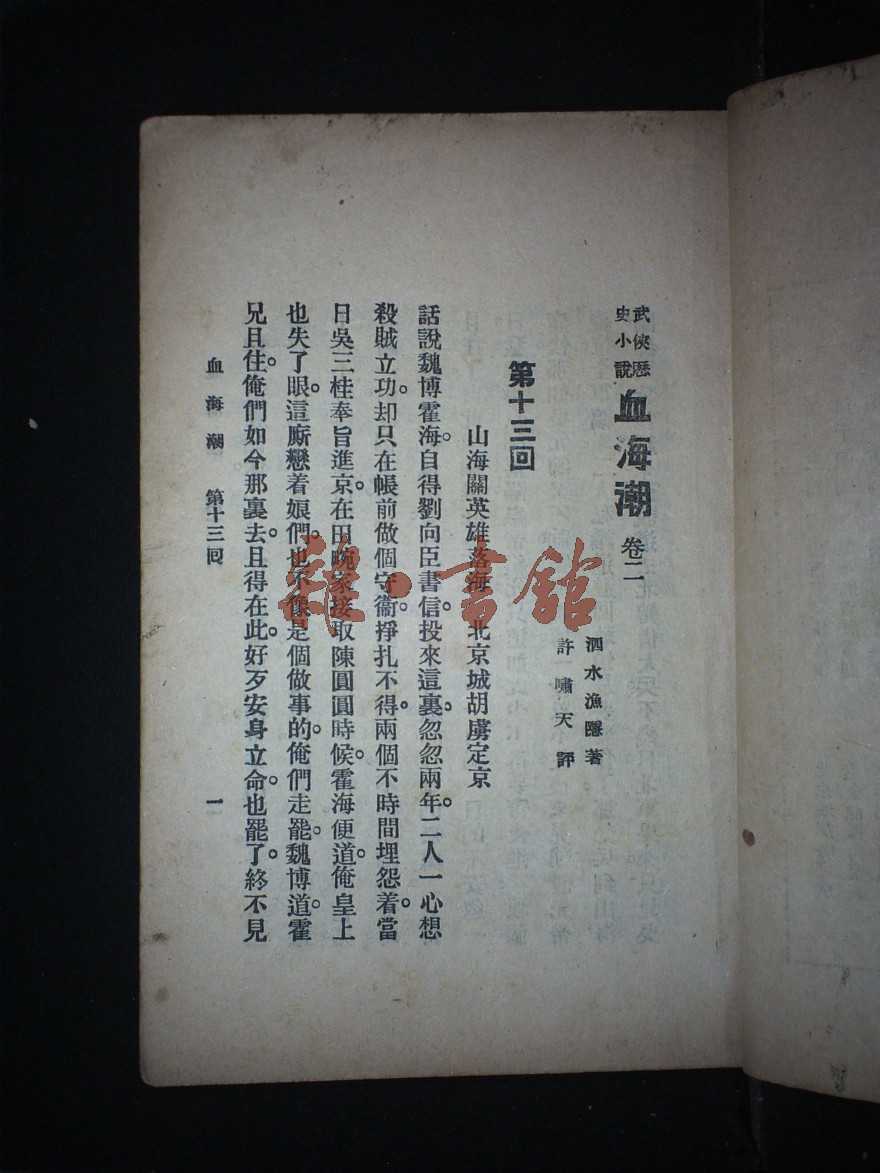 武俠歷
史小說
血海潮 卷二
泗水漁隱著
許嘯天評
第十三回
山海關英雄落海 北京城胡虜定京
話說魏博霍海。自得劉向臣書信投來這裏。忽忽兩年。二人一心想
殺賊立功。却只在帳前做個守衞。掙扎不得。兩個不時間埋怨着。當
日吳三桂奉旨進京。在田畹家接取陳圓圓時候。霍海便道。俺皇上
也失了眼。這厮戀着娘們。也不像是個做事的。俺們走罷。魏博道。霍
兄且住。俺們如今那裏去。且得在此。好歹安身立命。也罷了。終不見
血海潮 第十三回 一
雜·書館